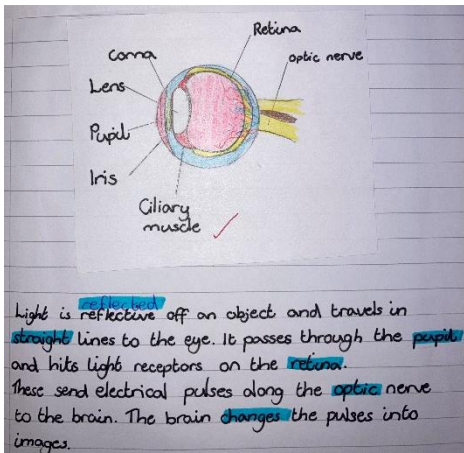 Retina
Cornna
optic nerve
Lens
Pupil
Iris
Ciliary
muscle
reflected
Light is reflective off an object and travels in
straight lines to the eye. It passes through the pupil
and hits light receptors on the retina.
These send electrical pulses along the optic nerve
to the brain. The brain changes the pulses into
images.